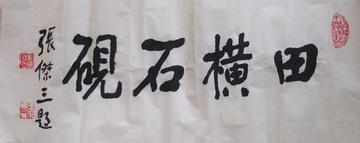 田橫石硯
張傑三題